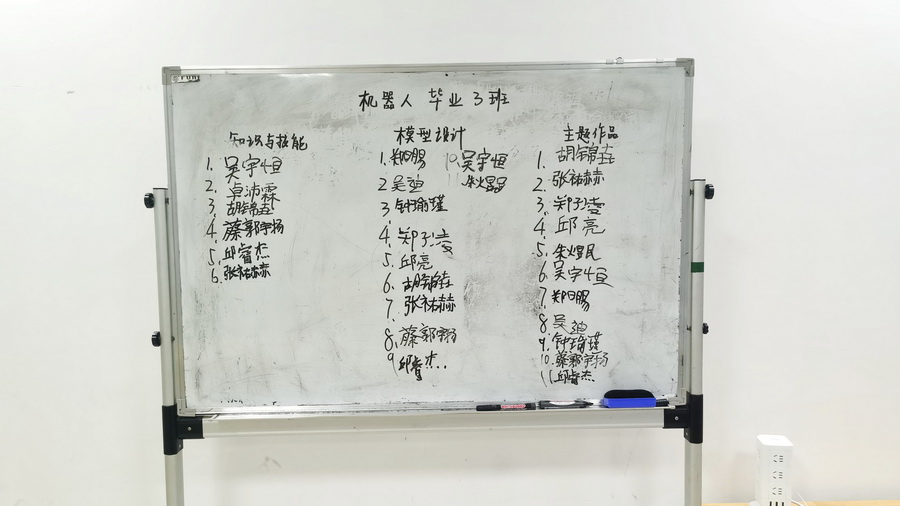 机器人 毕业3班
知识与技能
1. 吴宇恒
2. 卓沛霖
3. 胡锦垚
4. 藤郭宇扬
5. 邱睿杰
6. 张祐赫
模型设计
1. 郑日赐
2 吴迪
3. 钟瑜瑾
4. 郑子凌
5. 邱亮
6. 胡锦垚
7. 张祐赫
8. 藤郭宇扬
9 邱睿杰...
10. 吴宇恒
11 朱煜民
主题作品
1. 胡锦垚
2. 张祐赫
3. 郑子凌
4. 邱亮
5. 朱煜民
6. 吴宇恒
7. 郑日赐
8 吴迪
9. 钟瑜瑾
10. 藤郭宇扬
11. 邱睿杰